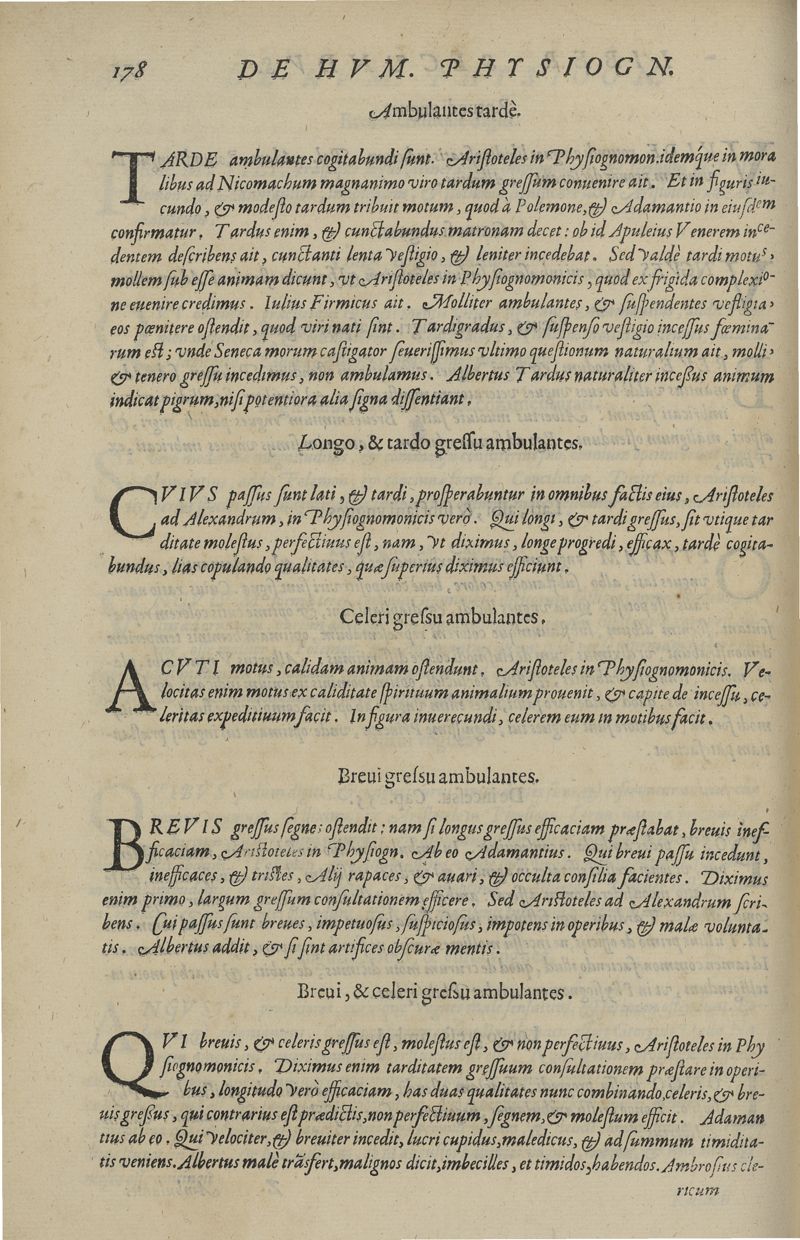 178 DE HVM. PHYSIOGN.
Ambulantes tardè.
TARDE ambulantes cogitabundi ſunt. Ariſtoteles in Phyſiognomon.idemq́ue in mora
libus ad Nicomachum magnanimo viro tardum greſſum conuenire ait. Et in figuris iu-
cundo, & modeſto tardum tribuit motum, quod à Polemone, & Adamantio in eiuſdem
confirmatur. Tardus enim, & cunctabundus matronam decet: ob id Apuleius Venerem ince-
dentem deſcribens ait, cunctanti lenta veſtigio, & leniter incedebat. Sed valdè tardi motus,
mollem ſub eſſe animam dicunt, vt Ariſtoteles in Phyſiognomonicis, quod ex frigida complexio-
ne euenire credimus. Iulius Firmicus ait. Molliter ambulantes, & ſuſpendentes veſtigia,
eos pœnitere oſtendit, quod viri nati ſint. Tardigradus, & ſuſpenſo veſtigio inceſſus fœmina-
rum eſt; vnde Seneca morum caſtigator ſeueriſſimus vltimo queſtionum naturalium ait, molli,
& tenero greſſu incedimus, non ambulamus. Albertus Tardus naturaliter inceſſus animum
indicat pigrum, niſi potentiora alia ſigna diſſentiant.
Longo, & tardo greſſu ambulantes.
CVIVS paſſus ſunt lati, & tardi, proſperabuntur in omnibus factis eius, Ariſtoteles
ad Alexandrum, in Phyſiognomonicis verò. Qui longi, & tardi greſſus, ſit vtique tar
ditate moleſtus, perfectiuus eſt, nam, vt diximus, longe progredi, efficax, tardè cogita-
bundus, lias copulando qualitates, quæ ſuperius diximus efficiunt.
Celeri greſsu ambulantes.
ACVTI motus, calidam animam oſtendunt. Ariſtoteles in Phyſiognomonicis. Ve-
locitas enim motus ex caliditate ſpirituum animalium prouenit, & capite de inceſſu, ce-
leritas expeditiuum facit. In figura inuerecundi, celerem eum in motibus facit.
Breui greſsu ambulantes.
BREVIS greſſus ſegne: oſtendit: nam ſi longus greſſus efficaciam præſtabat, breuis inef-
ficaciam, Ariſtoteles in Phyſiogn. Ab eo Adamantius. Qui breui paſſu incedunt,
inefficaces, & triſtes, Alij rapaces, & auari, & occulta conſilia facientes. Diximus
enim primo, largum greſſum conſultationem efficere. Sed Ariſtoteles ad Alexandrum ſcri-
bens. Cui paſſus ſunt breues, impetuoſus, ſuſpicioſus, impotens in operibus, & malæ volunta-
tis. Albertus addit, & ſi ſint artifices obſcuræ mentis.
Breui, & celeri greſsu ambulantes.
QVI breuis, & celeris greſſus eſt, moleſtus eſt, & non perfectiuus, Ariſtoteles in Phy
ſiognomonicis. Diximus enim tarditatem greſſuum conſultationem præſtare in operi-
bus, longitudo verò efficaciam, has duas qualitates nunc combinando, celeris, & bre-
uis greſſus, qui contrarius eſt prædictis, non perfectiuum, ſegnem, & moleſtum efficit. Adaman
tius ab eo. Qui velociter, & breuiter incedit, lucri cupidus, maledicus, & ad ſummum timidita-
tis veniens. Albertus malè trãſfert, malignos dicit, imbecilles, et timidos, habendos. Ambroſius cle-
ricum